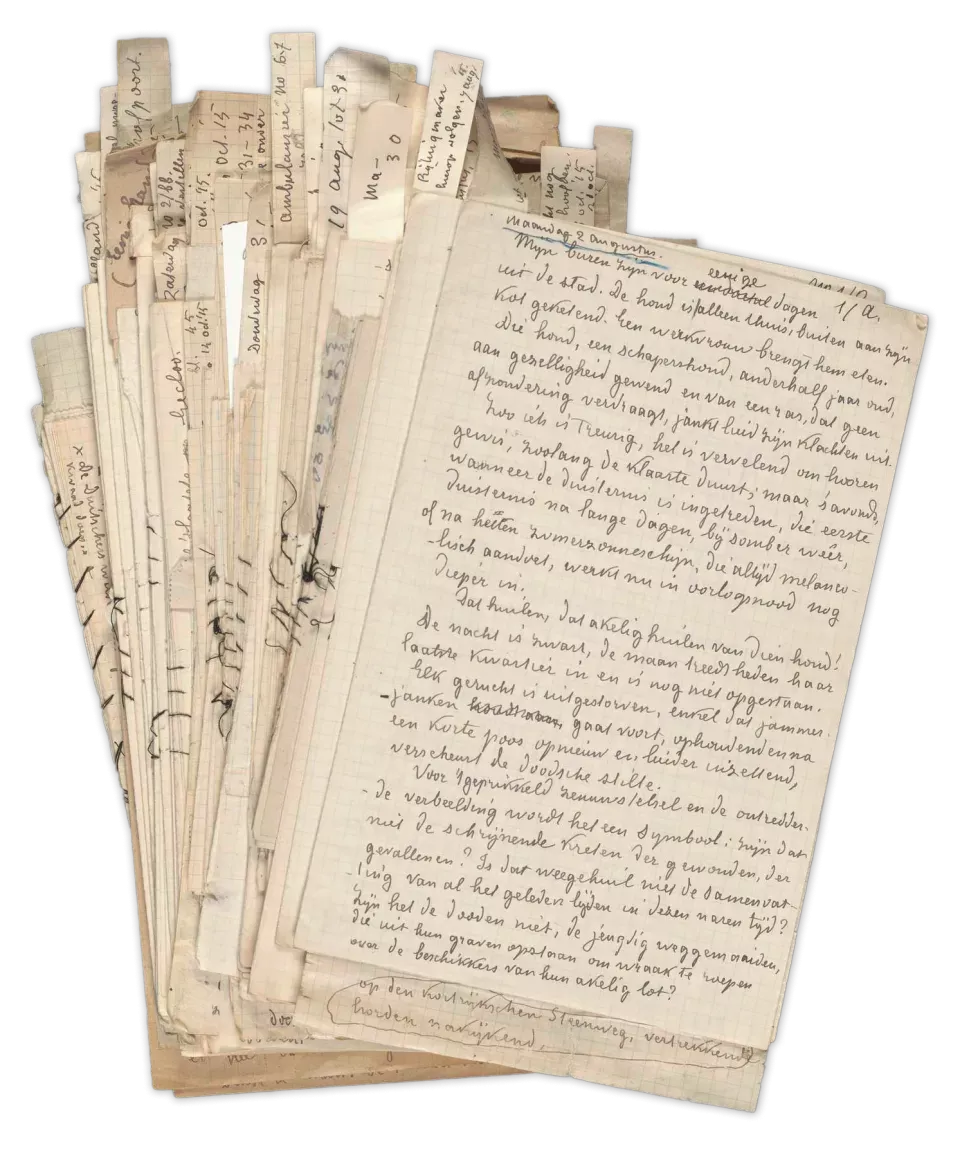 hofpoort.
ambulancier no 67
19 aug.
Ma-
30
Rijtuigmaker
oct. 15
31-34
oct. 15.
Zaterdag
Donderdag 3
Maandag 2 augustus.
1/a.
Mijn buren zijn voor eenige dagen
uit de stad. De hond is alleen thuis, buiten aan zijn
kot geketend. Een werkvrouw brengt hem eten.
Die hond, een schapershond, anderhalf jaar oud,
aan gezelligheid gewend en van een ras, dat geen
afzondering verdraagt, jankt luid zijn klachten uit.
Zoo iets is treurig, het is vervelend om hooren
gewis, zoolang de klaarte duurt; maar 's avonds,
wanneer de duisternis is ingetreden, die eerste
duisternis na lange dagen, bij somber weêr,
of na hetten zomerzonneschijn, die altijd melanco-
-lisch aandoet, werkt nu in oorlogsnood nog
dieper in.
Dat huilen, dat akelig huilen van dien hond!
De nacht is zwart, de maan treedt heden haar
laatste kwartier in en is nog niet opgestaan.
Elk gerucht is uitgestorven, enkel dat jammer-
-janken gaat voort, ophoudend en na
een korte poos opnieuw en luider inzettend,
verscheurt de doodsche stilte.
Voor 't geprikkeld zenuwstelsel en de outredder-
-de verbeelding wordt het een symbool: zijn dat
niet de schrijnende kreten der gewonden, der
gevallenen? Is dat weegehuil niet de samenvat-
-ting van al het geleden lijden in dezen naren tijd?
Zijn het de dooden niet, de jeugdig weggemaaiden,
die uit hun graven opstaan om wraak te roepen
over de beschikkers van hun akelig lot?
op den kortrijkschen Steenweg, vertrekkende
horden nakijkend,